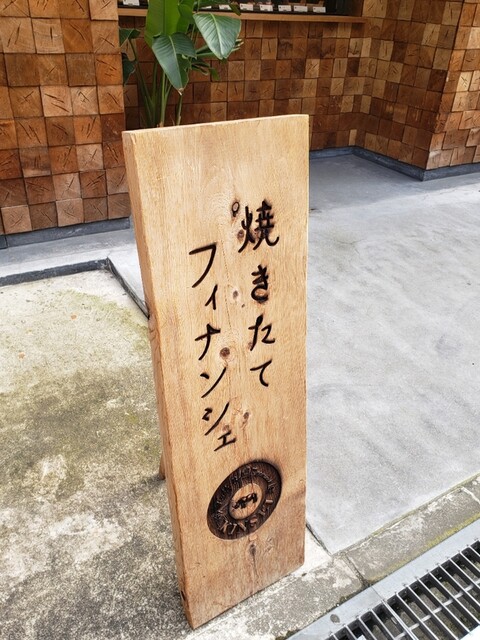 焼きたて
フィナンシェ